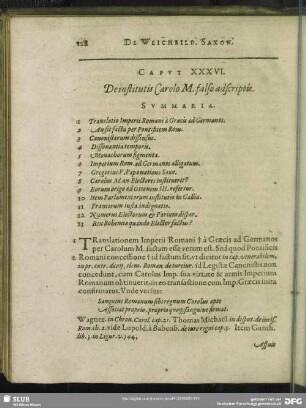 128 DE WEICHBILD. SAXON.
CAPVT XXXVI.
De institutis Carolo M. falso adscriptis.
SVMMARIA.
1 Translatio Imperii Romani à Græcis ad Germanos.
2 An sit facta per Pontificem Rom.
3 Canonistarum dissensus.
4 Dissonantia temporis.
5 Monachorum figmenta.
6 Imperium Rom. ad Germanos alligatum.
7 Gregorius V. Papa natione Saxo.
8 Carolus M. an Electores instituerit?
9 Eorum origo ad Ottonem III. refertur.
10 Item Parlamentorum institutio in Gallia.
11 Francorum iusta indignatio.
12 Numerus Electorum & Parium dispar.
13 Rex Bohemiæ quando Elector factus?
1 TRanslationem Imperii Romani † à Græcis ad Germanos
per Carolum M. factam esse verum est. Sed quod Pontificis
2 Romani concessione † id factum sit, vt dicitur in cap. venerabilem,
Legistæ Canonistis non
concedunt, cum Carolus Imp. sua virtute & armis Imperium
Romanum obtinuerit
confirmatus. Vnde versus:
Sanguine Romanum sibi regnum Carolus apte
Wagner. in Chron. Carol. cap. 21. Thomas Michaël
Rom. th. 2. vide Lupold. à Babenb. de iure regni cap. 3. Item Gunth.
lib. 3. in Ligur. v. 544.
Assuit
SLUB
DFG